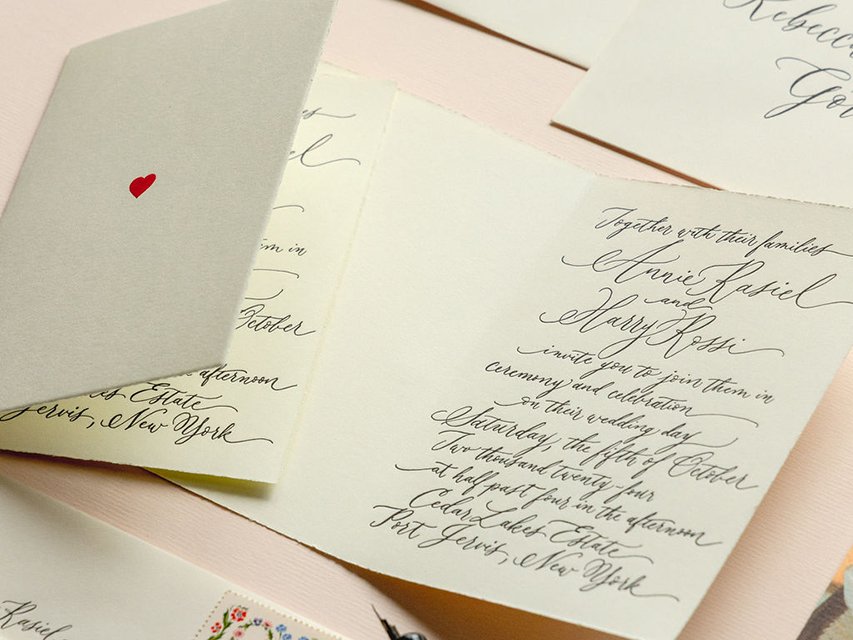 Together with their families
Annie Rasiel
and
Harry Rossi
invite you to join them in
ceremony and celebration
on their wedding day
Saturday, the fifth of October
Two thousand twenty-four
at half past four in the afternoon
Cedar Lakes Estate
Port Jervis, New York
em in
October
afternoon
Estate
Jervis, New York
Rasiel